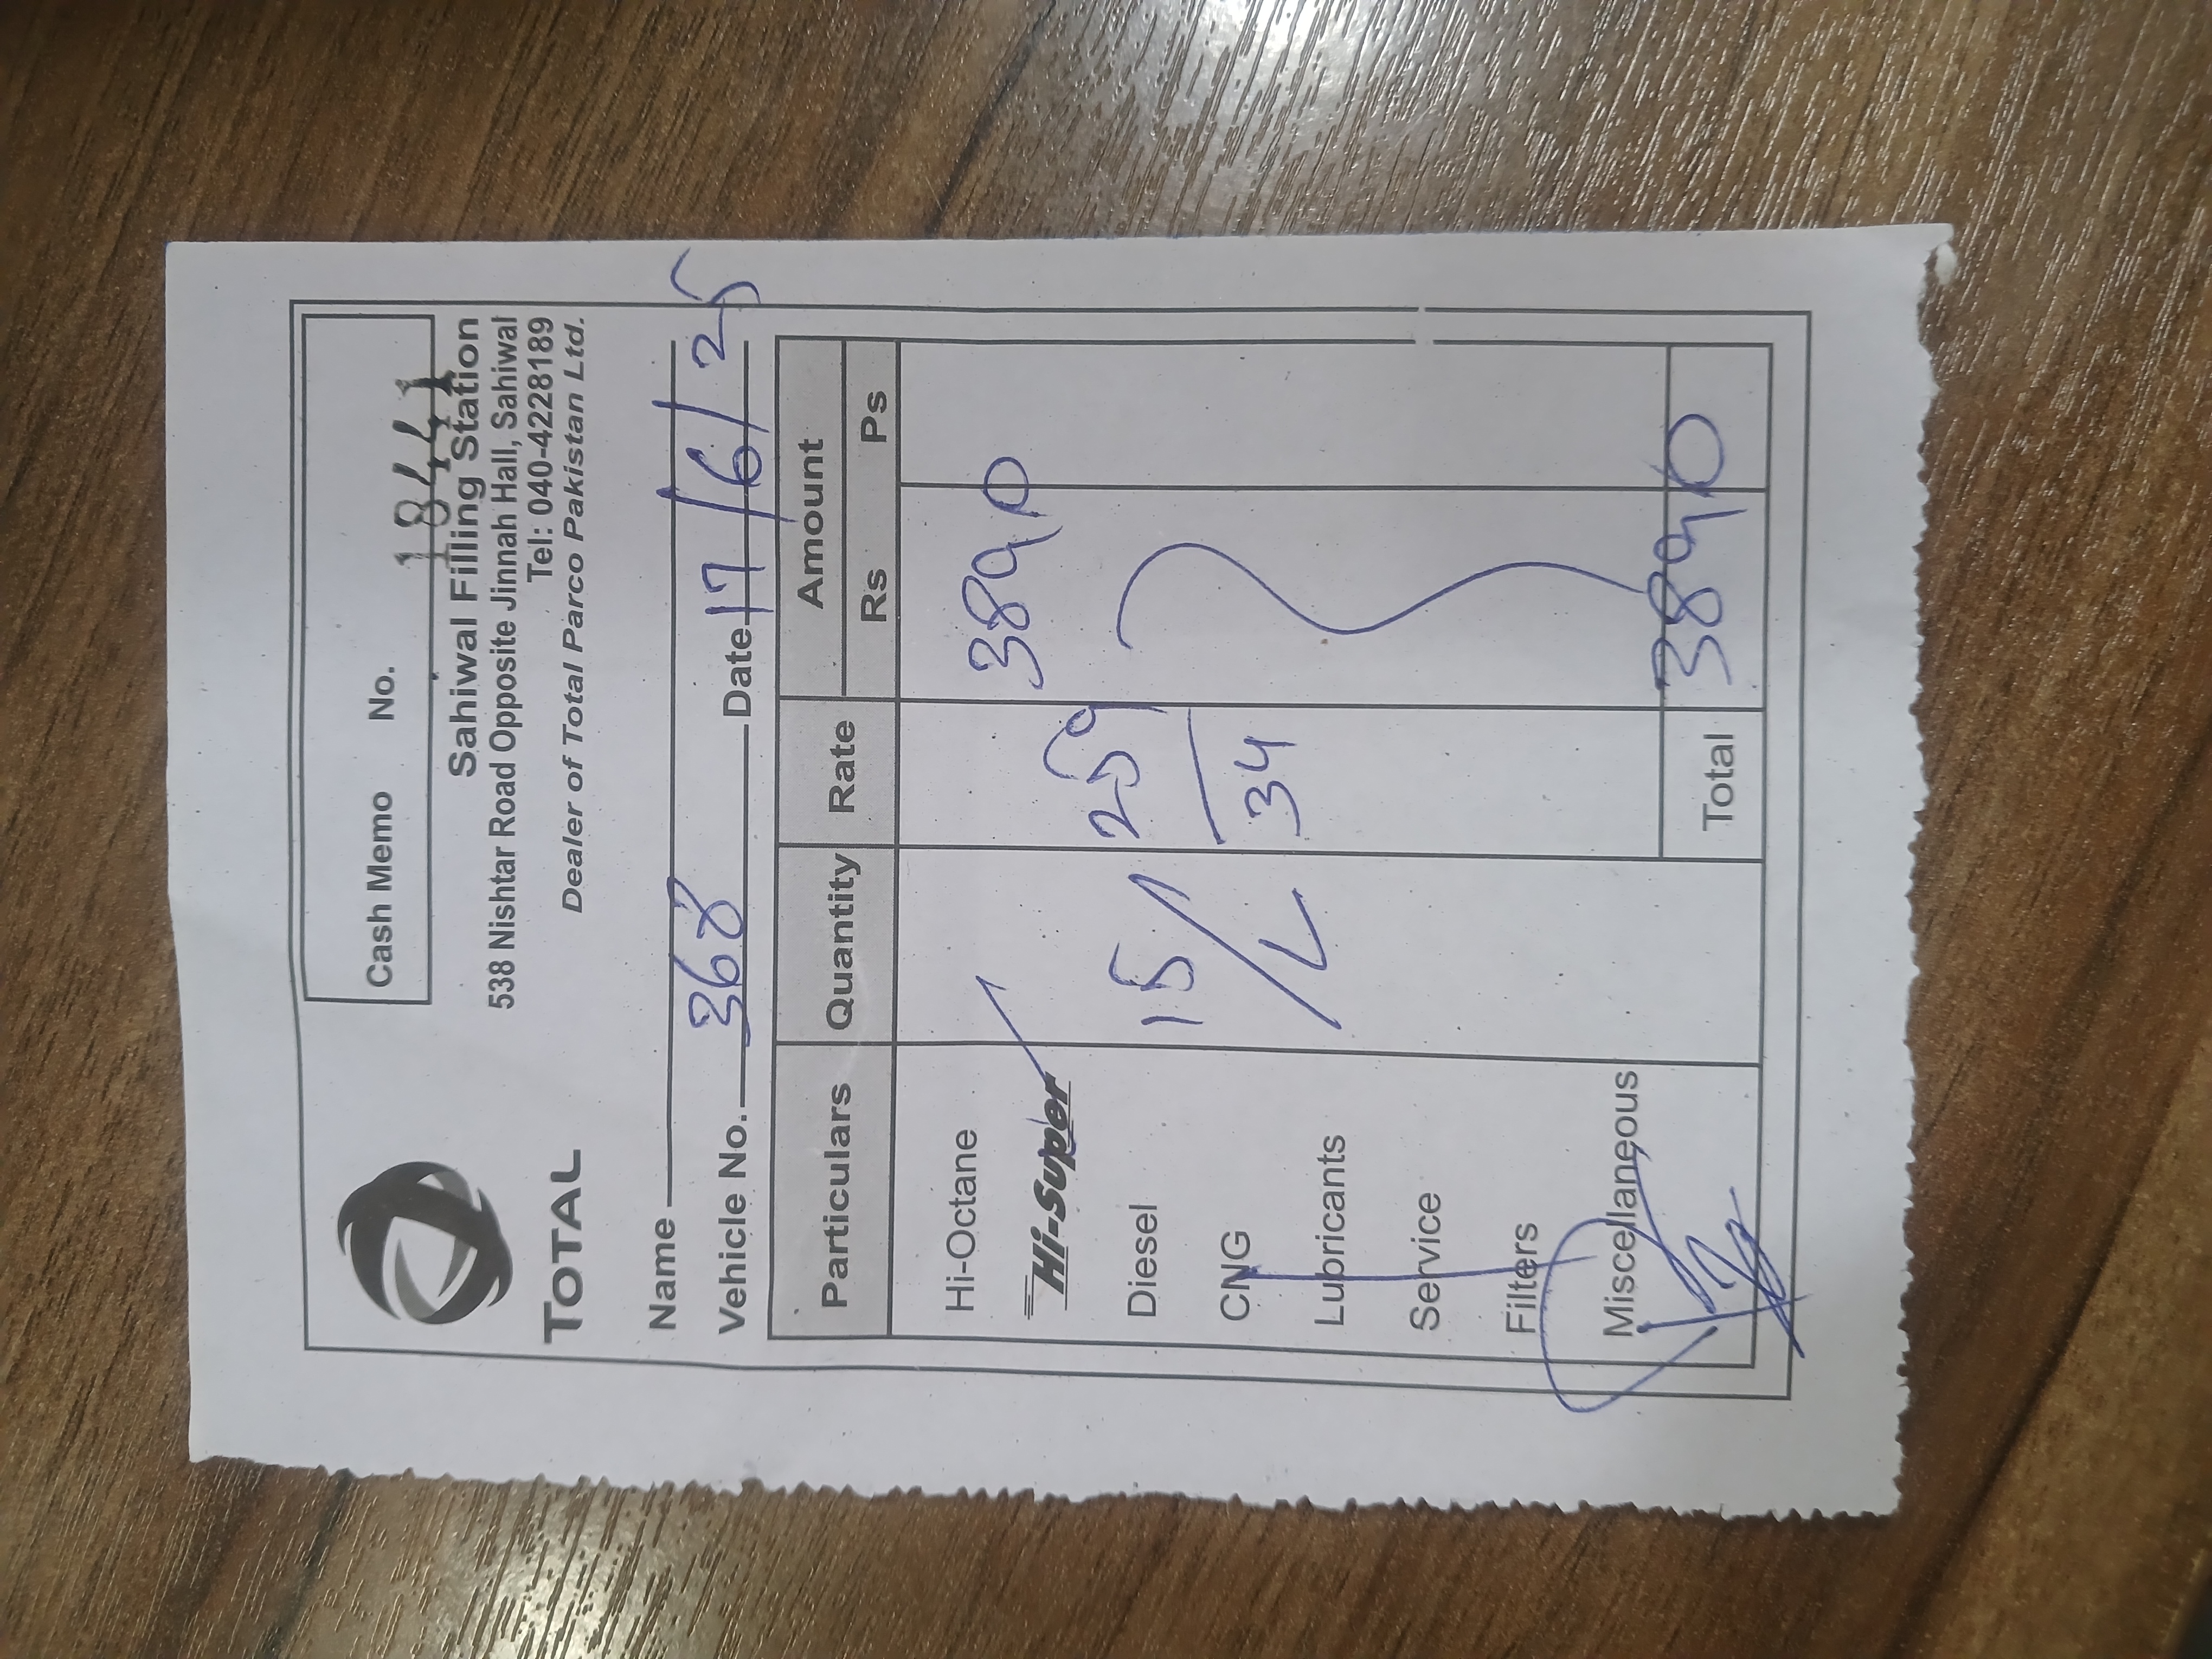 Cash Memo No. 18441
TOTAL
Sahiwal Filling Station
538 Nishtar Road Opposite Jinnah Hall, Sahiwal
Tel: 040-4228189
Dealer of Total Parco Pakistan Ltd.
Name
Vehicle No. 368 Date 17/6/25
Particulars Quantity Rate Amount
Rs Ps
Hi-Octane 3890
Hi-Super
Diesel 15 259
CNG L 34
Lubricants
Service
Filters
Miscellaneous
Total 3890